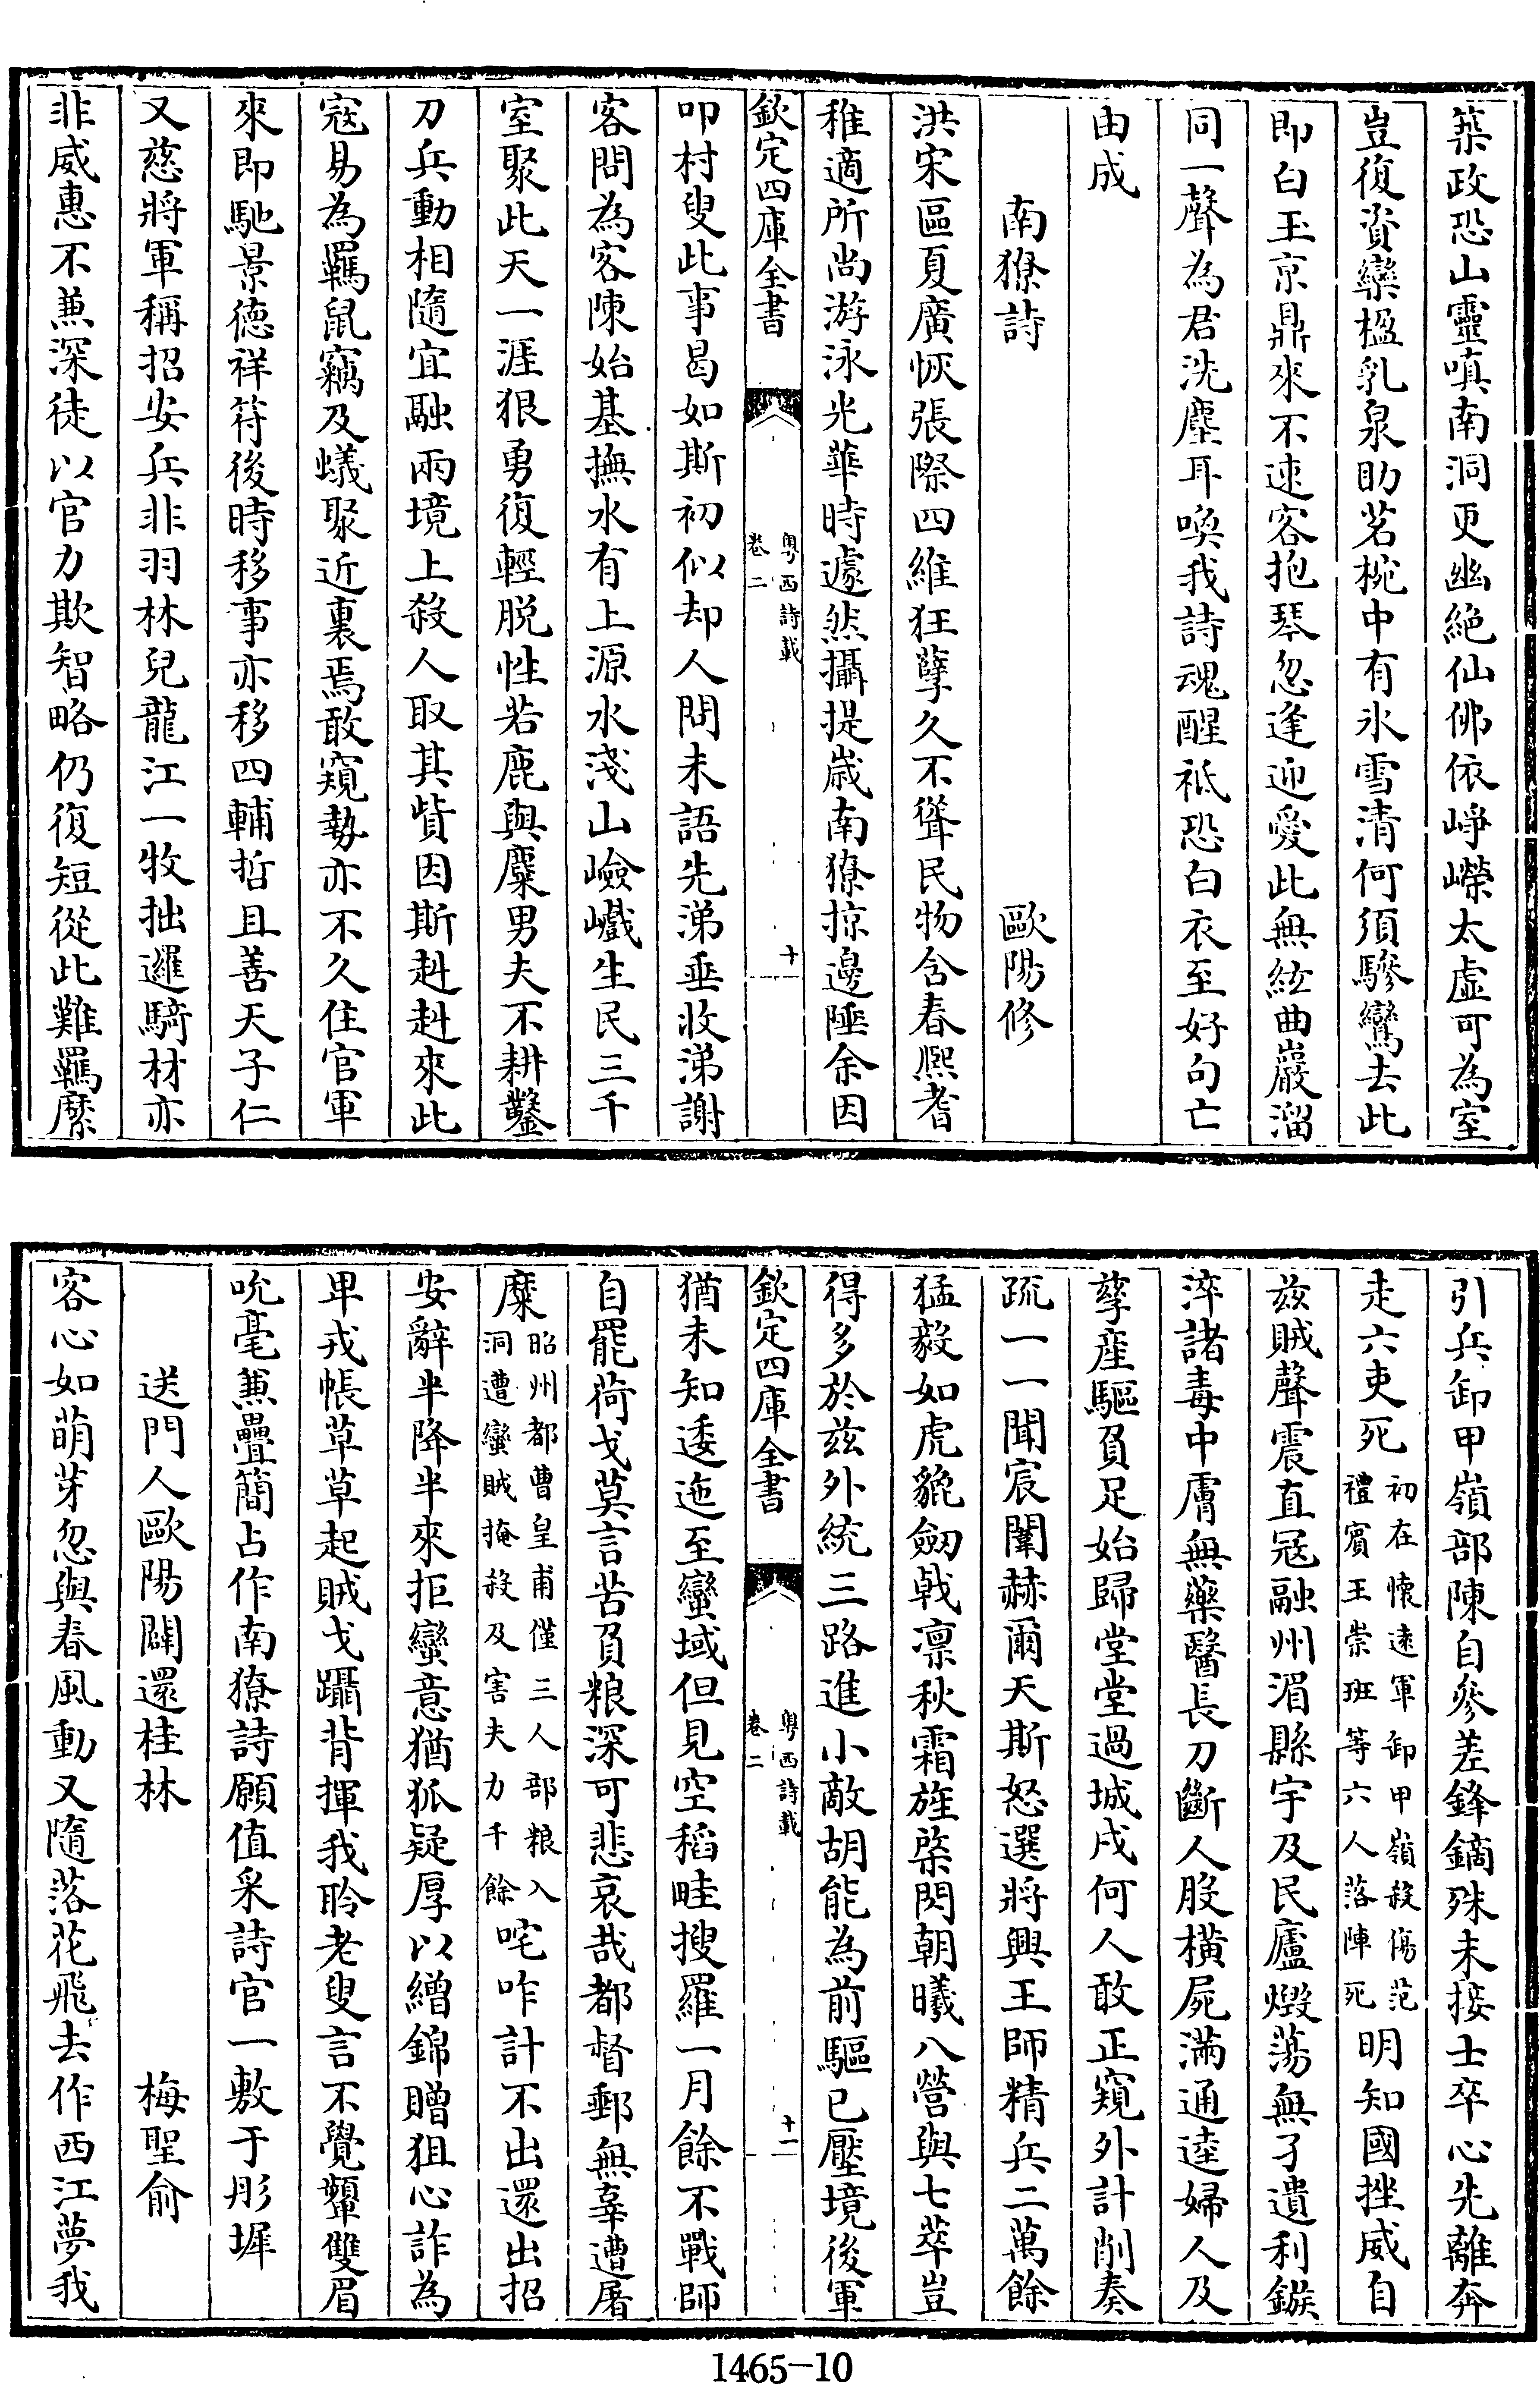 築政恐山靈嗔南洞更幽絶仙佛依崢嶸太虚可為室
豈復資欒楹乳泉助茗椀中有氷雪清何須驂鸞去此
即白玉京鼎來不速客抱琴忽逢迎愛此無絃曲巖溜
同一聲為君洗塵耳喚我詩魂醒祗恐白衣至好句亡
由成
南獠詩 歐陽修
洪宋區夏廣恢張際四維狂孽久不聳民物含春熙耆
稚適所尚游泳光華時遽然攝提歳南獠掠邊陲余因
欽定四庫全書 粵西詩載 卷二 十
叩村叟此事曷如斯初似却人問未語先涕垂收涕謝
客問為客陳始基撫水有上源水淺山嶮巇生民三千
室聚此天一涯狠勇復輕脱性若鹿與麋男夫不耕鑿
刀兵動相隨宜融兩境上殺人取其貲因斯赳赳來此
冦易為羈鼠竊及蟻聚近裏焉敢窺勢亦不久住官軍
來即馳景徳祥符後時移事亦移四輔哲且善天子仁
又慈將軍稱招安兵非羽林兒龍江一牧拙邏騎材亦
非威惠不兼深徒以官力欺智略仍復短從此難羈縻
引兵卸甲嶺部陳自參差鋒鏑殊未接士卒心先離奔
走六吏死初在懷逺軍卸甲嶺殺傷范禮賓王崇班等六人落陣死明知國挫威自
兹賊聲震直冦融州湄縣宇及民廬燬蕩無孑遺利鏃
淬諸毒中膚無藥醫長刀斷人股横屍滿通逵婦人及
孳産驅負足始歸堂堂過城戍何人敢正窺外計削奏
疏一一聞宸闈赫爾天斯怒選將興王師精兵二萬餘
猛毅如虎貔劒㦸凛秋霜旌棨閃朝曦八營與七萃豈
得多於兹外統三路進小敵胡能為前驅已壓境後軍
欽定四庫全書 粵西詩載 卷二 十一
猶未知逶迤至蠻域但見空稻畦搜羅一月餘不戰師
自罷荷戈莫言苦負粮深可悲哀哉都督郵無辜遭屠
糜昭州都曹皇甫僅三人部粮入洞遭蠻賊掩殺及害夫力千餘咤咋計不出還出招
安辭半降半來拒蠻意猶狐疑厚以繒錦贈狙心詐為
卑戎帳草草起賊戈躡背揮我聆老叟言不覺顰雙眉
吮毫兼疊簡占作南獠詩願值采詩官一敷于彤墀
送門人歐陽闢還桂林 梅聖俞
客心如萌芽忽與春風動又隨落花飛去作西江夢我
1465-10